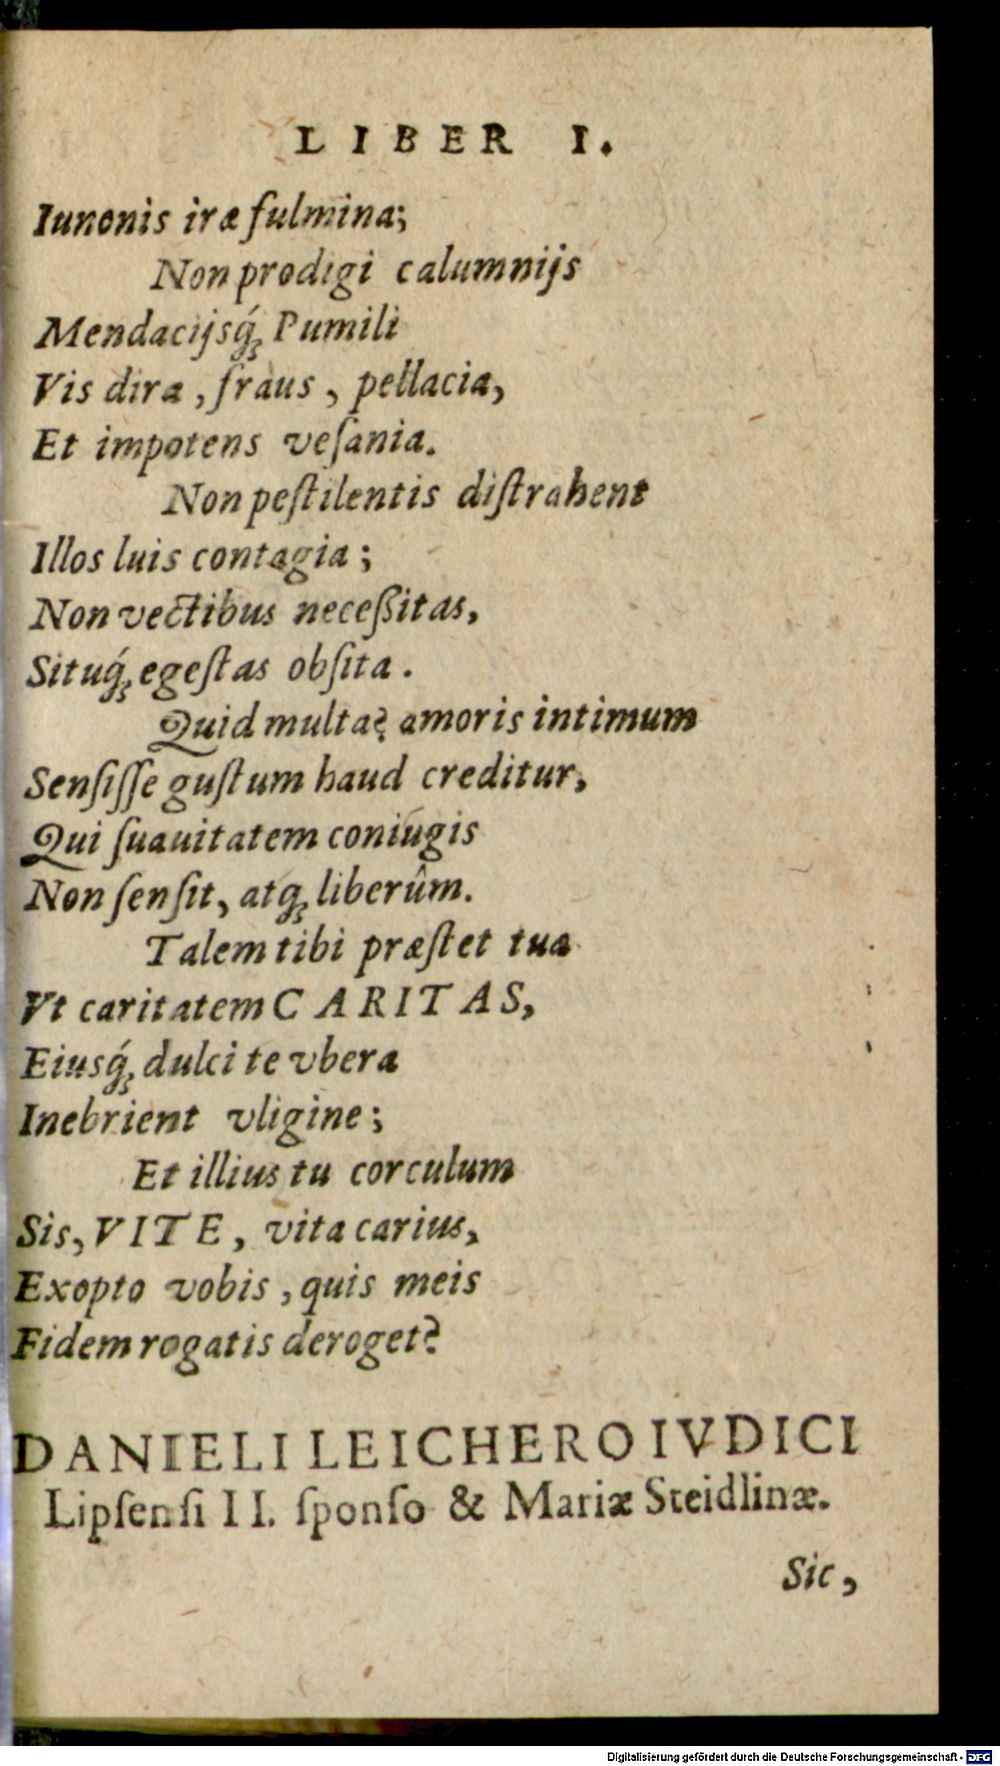 LIBER I.
Iunonis iræ fulmina;
Non prodigi calumnijs
Mendacijsq́ꝫ Pumili
Vis dira, fraus, pellacia,
Et impotens veſania.
Non peſtilentis diſtrahent
Illos luis contagia;
Non vectibus neceßitas,
Situq́ꝫ egeſtas obſita.
Quid multa? amoris intimum
Senſiſſe guſtum haud creditur,
Qui ſuauitatem coniugis
Non ſenſit, atqꝫ liberûm.
Talem tibi præſtet tua
Vt caritatem CARITAS,
Eiusq́ꝫ dulci te vbera
Inebrient vligine;
Et illius tu corculum
Sis, VITE, vita carius,
Exopto vobis, quis meis
Fidem rogatis deroget?
DANIELI LEICHERO IVDICI
Lipſenſi II. ſponſo & Mariæ Steidlinæ.
Sic,
Digitalisierung gefördert durch die Deutsche Forschungsgemeinschaft - DFG